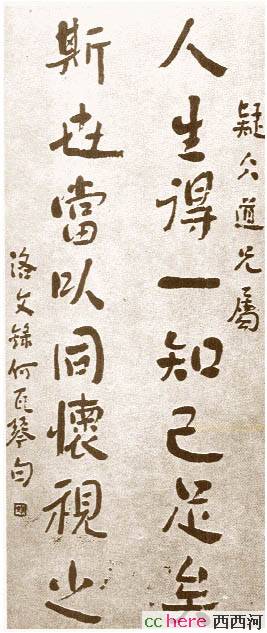 疑仌道兄屬
人生得一知己足矣
斯世當以同懷視之
洛文錄何瓦琴句
cchere 西西河